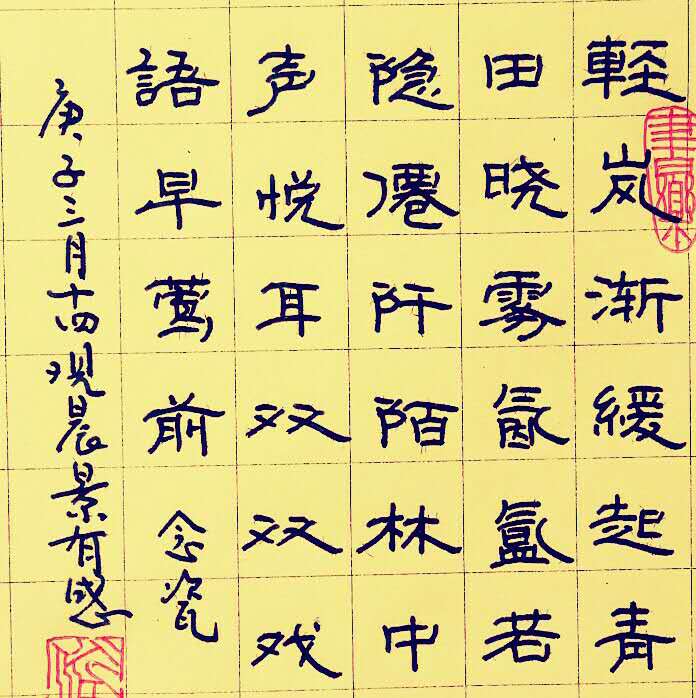 輕岚渐緩起青
田晓雾氤氲若
隐僊阡陌林中
声悦耳双双戏
語早莺前 念瓷
庚子三月十四观晨景有感